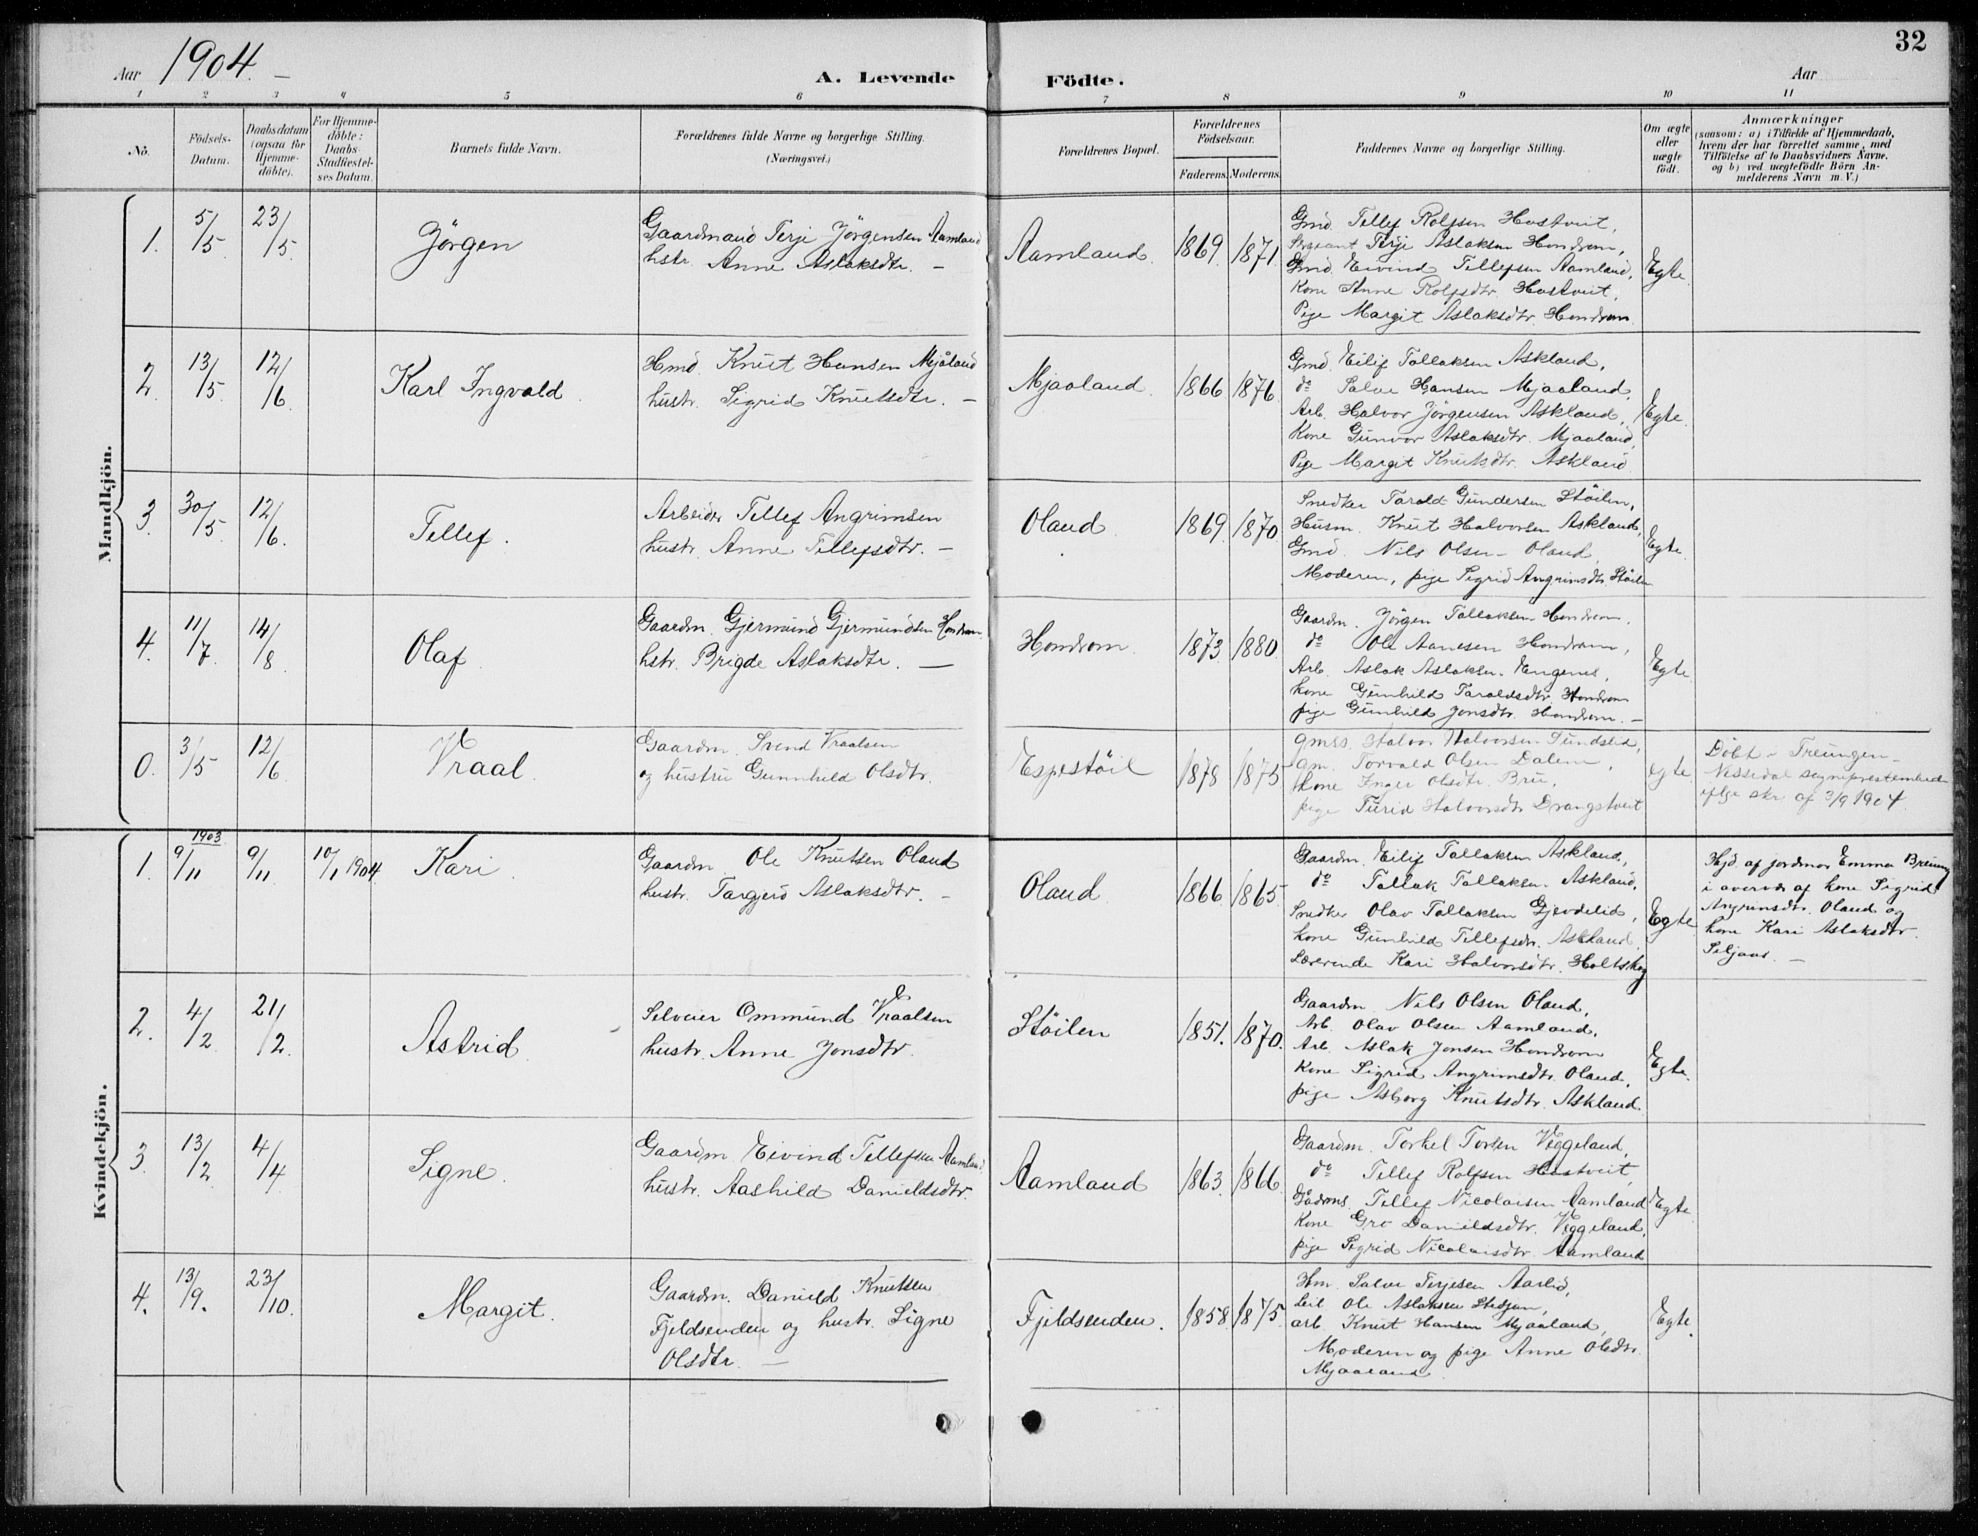 32
Aar 1904. –
A. Levende Födte.
Aar
1 2 3 4 5 6 7 8 9 10 11
No.
Födsels-Datum.
Daabsdatum (ogsaa for Hjemmedöbte).
For Hjemmedöbte: Daabs-Stadfæstelses Datum.
Barnets fulde Navn.
Forældrenes fulde Navne og borgerlige Stilling. (Næringsvei.)
Forældrenes Bopæl.
Forældrenes Födselsaar.
Faderens. Moderens.
Faddernes Navne og borgerlige Stilling.
Om ægte eller uægte födt.
Anmærkninger
(saasom: a) i Tilfælde af Hjemmedaab, hvem der har forrettet samme, med Tilföielse af to Daabsvidners Navne, og b) ved uægtefödte Börn Anmelderens Navn m. V.)
Mandkjön.
1. 5/5 23/5 Jörgen
Gaardmand Terje Jörgensen Aamland
hstr. Anne Aslaksdtr. –
Aamland. 1869. 1871.
Gmd. Tellef Rolfsen Hastveit,
Sergeant Terje Aslaksen Hondrom,
Gmd. Eivind Tellefsen Aamland,
Kone Anne Rolfsdtr. Hastveit,
Pige Margit Aslaksdtr. Hondrom
Egte
2. 13/5 12/6. Karl Ingvald.
Hmd. Knut Hansen Mjåland
hustr. Sigrid Knutsdtr. –
Mjaaland. 1866 1876.
Gmd. Eilif Tallaksen Askland,
do Salve Hansen Mjaaland,
Arb. Halvor Jörgensen Askland,
Kone Gunvor Aslaksdtr. Mjaaland,
Pige Margit Knutsdtr. Askland.
Egte.
3. 30/5 12/6. Tellef.
Arbeider Tellef Angrimsen
hustr. Anne Tellefsdtr. –
Oland 1869. 1870
Snedker Tarald Gundersen Stöilen,
Husm. Knut Halvorsen Askland,
Gmd. Nils Olsen – Oland,
Moderen, pige Sigrid Angrimsdtr. Stöilen
Egte.
4. 11/7. 14/8 Olaf.
Gaardm. Gjermund Gjermundsen Hondrom.
hstr. Brigde Aslaksdtr. –
Hondrom. 1873. 1880.
Gaardm. Jörgen Tallaksen Hondrom,
do Ole Aanesen Hondrom,
Arb. Aslak Aslaksen Engenes,
kone Gunhild Taraldsdtr. Hondrom
pige Gunhild Jonsdtr. Hondrom. –
Egte
0. 3/5 12/6 Vraal.
Gaardm. Svend Vraalsen
og hustru Gunnhild Olsdtr.
Espestöil 1878 1875
gmss. Halvor Halvorsen Sundslid,
gm. Torvald Olsen Dalem,
kone Inger Olsdtr. Bru,
pige Turid Halvorsdtr Drangstveit
egte
Döbt i Treungen –
Nissedal sogneprestembed
ifölge skr. af 3/9 1904.
Kvindekjön.
1. 1903 9/11 9/11. 10/1 1904. Kari.
Gaardm. Ole Knutsen Oland
hustr. Targjerd Aslaksdtr. –
Oland. 1866. 1865.
Gaardm. Eilif Tallaksen Askland,
do Tallak Tallaksen Askland,
Snedker Olav Tallaksen Gjevdelid,
kone Gunhild Tellefsdtr. Askland,
Lærerinde Kari Halvorsdtr. Holtskog
Egte
Hjd af jordmor Emma
i overvær af kone Sigrid
Angrimsdtr. Oland og
kone Kari Aslaksdtr.
Seljaas. –
2. 4/2 21/2. Astrid.
Selveier Ommund Vraalsen
hustr. Anne Jonsdtr.
Stöilen 1851. 1870.
Gaardm Nils Olsen Oland,
Arb. Olav Olsen Aamland,
Arb. Aslak Jonsen Hondrom
Kone Sigrid Angrimsdtr. Oland,
pige Asborg Knutsdtr. Askland.
Egte.
3. 13/2 4/4 Signe.
Gaardm Eivind Tellefsen Aamland
hustr. Aashild Danieldsdtr.
Aamland 1863. 1866.
Gaardm. Torkel Torsen Veggeland,
do Tellef Rolfsen Hastveit,
Gådms. Tellef Nicolaisen Aamland
Kone Gro Danieldsdtr. Veggeland,
pige Sigrid Nicolaisdtr. Aamland
Egte
4. 13/9. 23/10. Margit.
Gaardm. Danield Knutsen
Fjeldsenden og hustr. Signe
Olsdtr. –
Fjeldsenden. 1858. 1875.
Hm. Salve Terjesen Aarlid,
Leil. Ole Aslaksen
arb. Knut Hansen Mjaaland,
Moderen og pige Anne Olsdtr.
Mjaaland.
Egte.